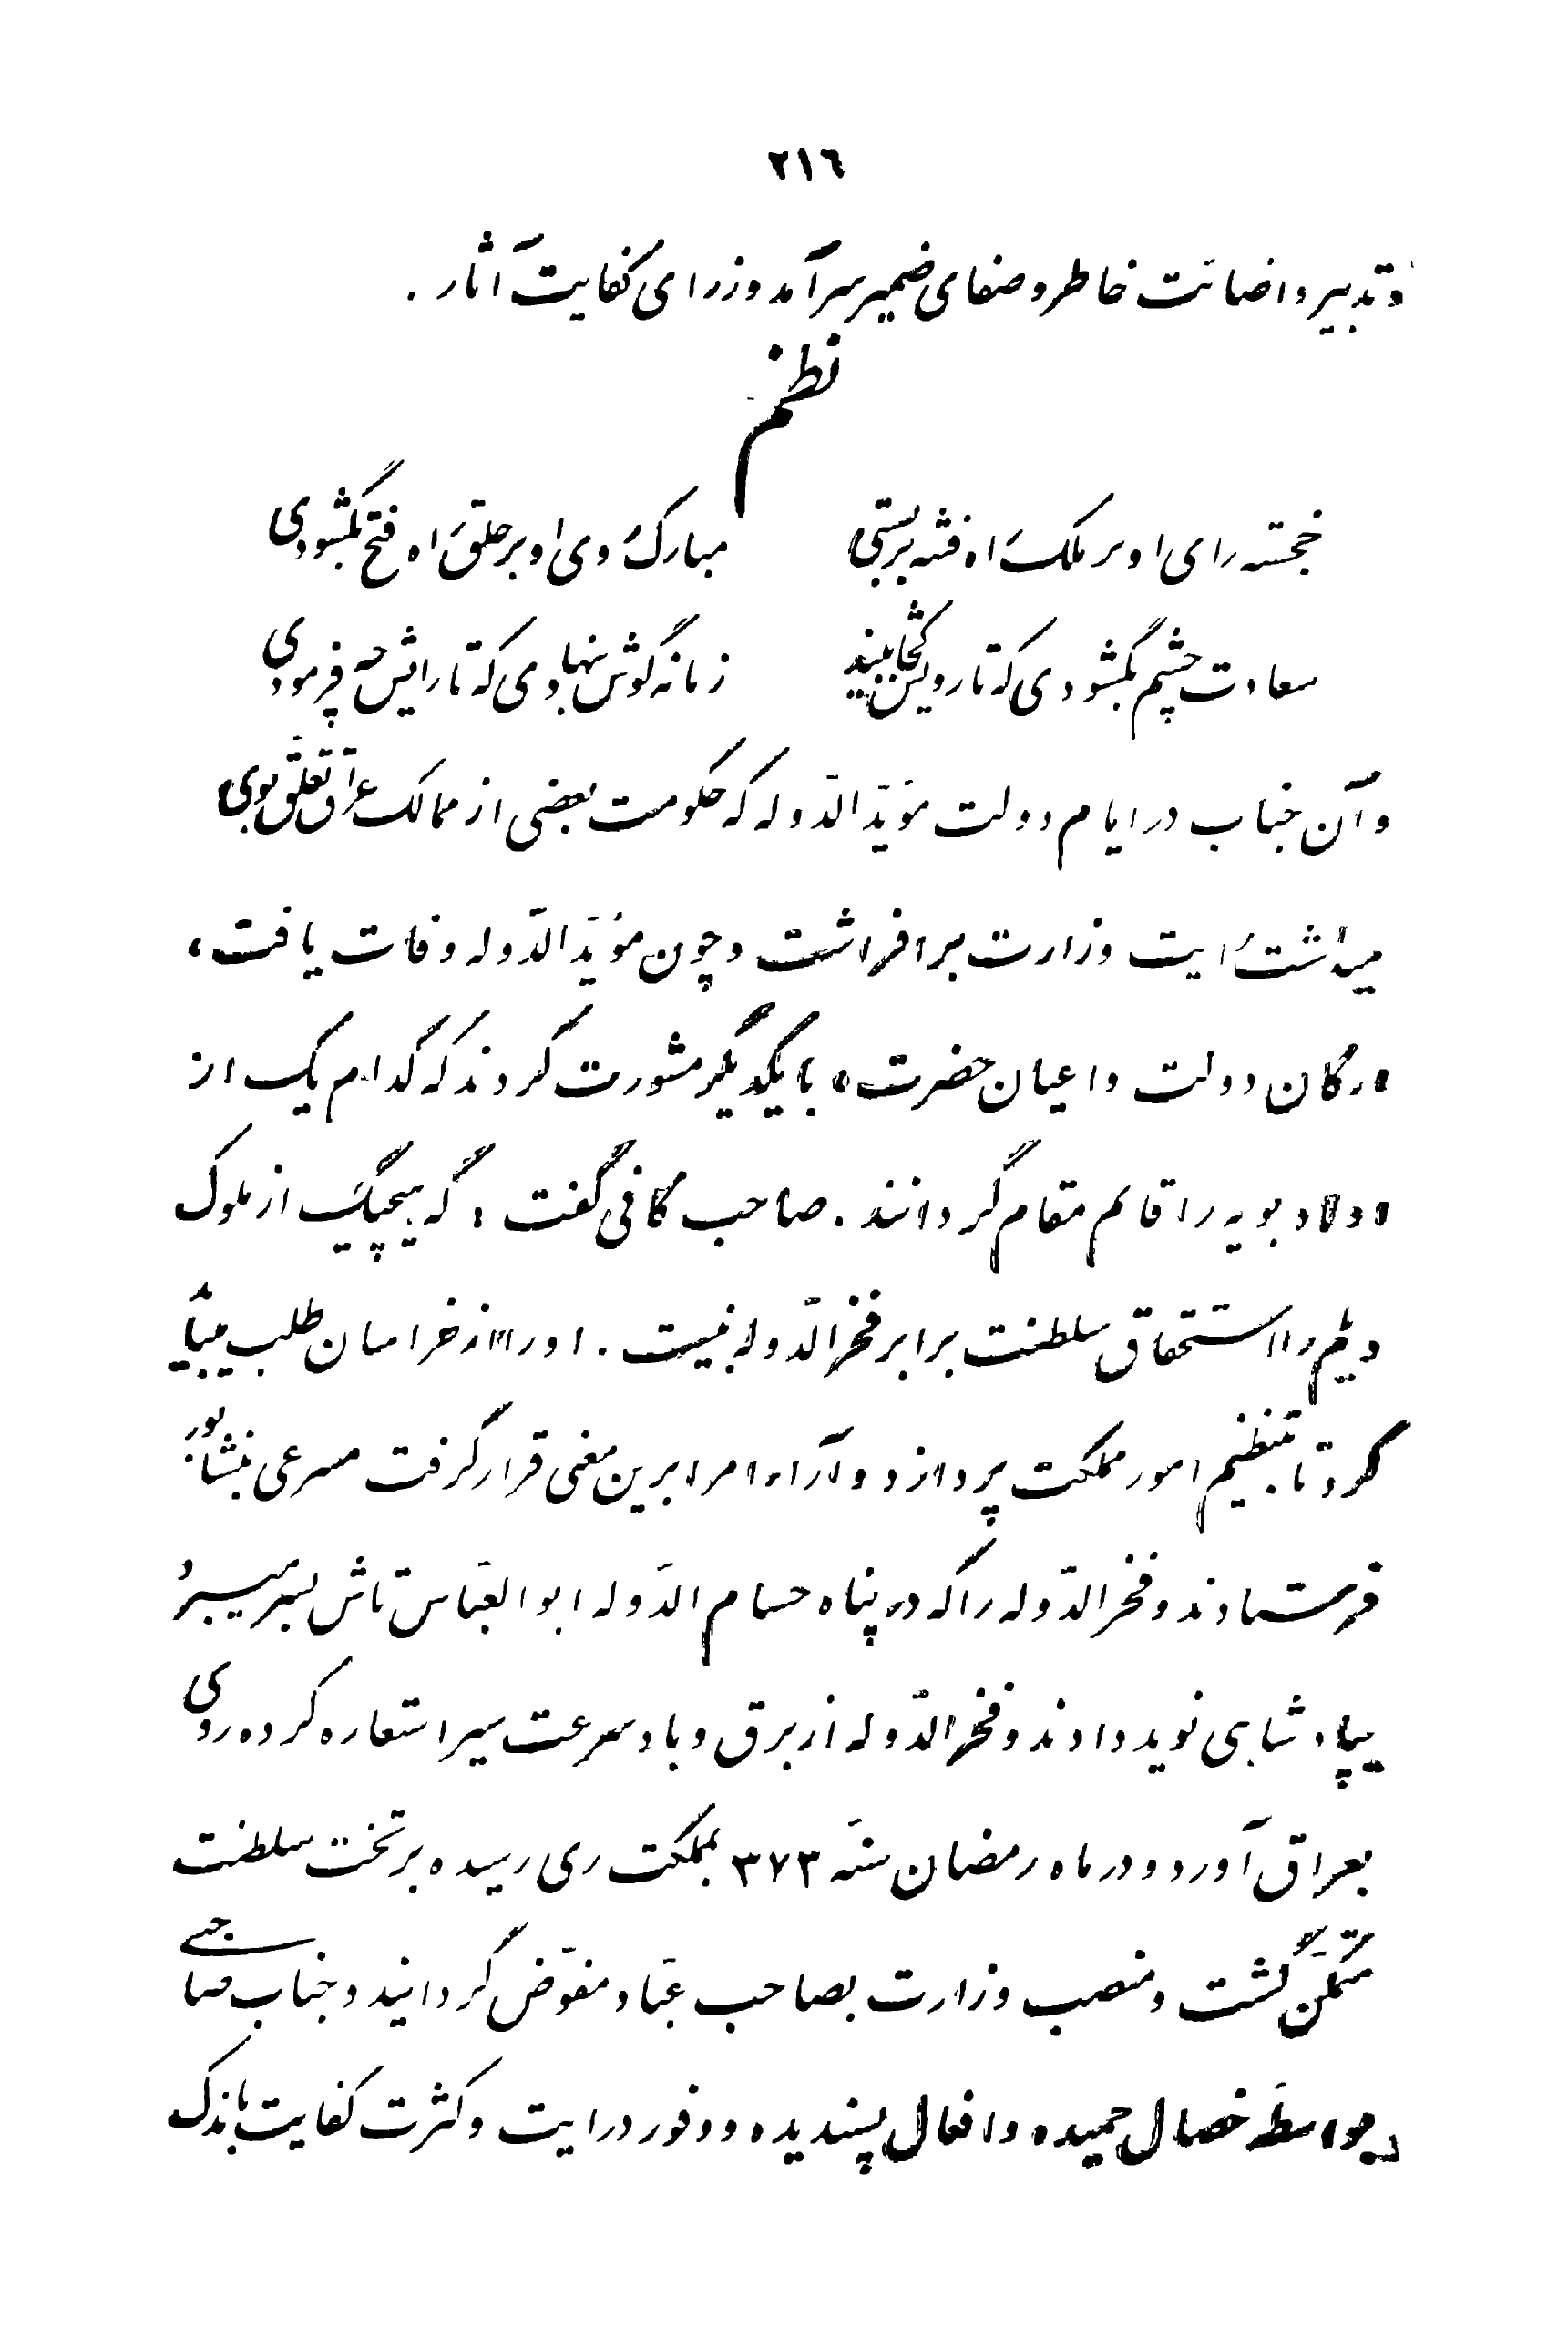 ٢١٦
و تدبیر و اضائت خاطر و صفای ضمیر سرآمد وزرای کفایت آثار .
نظم
خجسته رای او بر ملک راه فتنه بربستی مبارک روی او بر خلق راه فتح بگشودی
سعادت چشم بگشودی که تا رویش کجا بیند زمانه گوش بنهادی که تا رایش چه فرمودی
و آن جناب در ایام دولت مؤیّد الدّوله که حکومت بعضی از ممالک عراق تعلّق بوی
میداشت رایت وزارت برافراشت و چون مؤیّد الدّوله وفات یافت،
ارکان دولت و اعیان حضرت، با یکدیگر مشورت کردند که کدام یک از
اولاد بویه را قائم مقام گردانند . صاحب کافی گفت : که هیچیک از ملوک
دیلم را استحقاق سلطنت برابر فخر الدّوله نیست . او را از خراسان طلب میباید
کرد تا بتنظیم امور مملکت پردازد و آراء امرا برین معنی قرار گرفت مسرعی بنشابور
فرستادند و فخر الدّوله را که در پناه حسام الدّوله ابو العبّاس تاش بسر میبرد
بپادشاهی نوید دادند و فخر الدّوله از برق و باد سرعت سیر استعاره کرده روی
بعراق آورد و در ماه رمضان سنه ٣٧٣ بمملکت ری رسیده بر تخت سلطنت
متمکّن گشت و منصب وزارت بصاحب عبّاد مفوّض گردانید و جناب صاحبی
بواسطه خصال حمیده و افعال پسندیده و وفور درایت و کثرت کفایت باندک